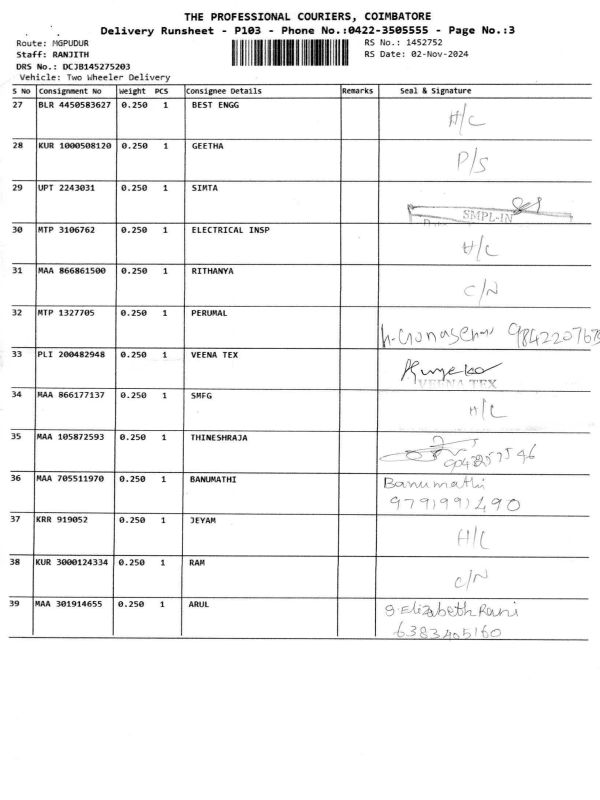 THE PROFESSIONAL COURIERS, COIMBATORE
Delivery Runsheet - P103 - Phone No.:0422-3505555 - Page No.:3
Route: MGPUDUR RS No.: 1452752
Staff: RANJITH RS Date: 02-Nov-2024
DRS No.: DCJB145275203
Vehicle: Two Wheeler Delivery
S No Consignment No Weight PCS Consignee Details Remarks Seal & Signature
27 BLR 4450583627 0.250 1 BEST ENGG H/C
28 KUR 1000508120 0.250 1 GEETHA P/S
29 UPT 2243031 0.250 1 SIMTA SMPL-IN
30 MTP 3106762 0.250 1 ELECTRICAL INSP H/C
31 MAA 866861500 0.250 1 RITHANYA C/N
32 MTP 1327705 0.250 1 PERUMAL
33 PLI 200482948 0.250 1 VEENA TEX VEENA TEX
34 MAA 866177137 0.250 1 SMFG H/C
35 MAA 105872593 0.250 1 THINESHRAJA
36 MAA 705511970 0.250 1 BANUMATHI Banumathi
9791991490
37 KRR 919052 0.250 1 JEYAM H/C
38 KUR 3000124334 0.250 1 RAM C/N
39 MAA 301914655 0.250 1 ARUL S.Elizabeth Rani
6383405160